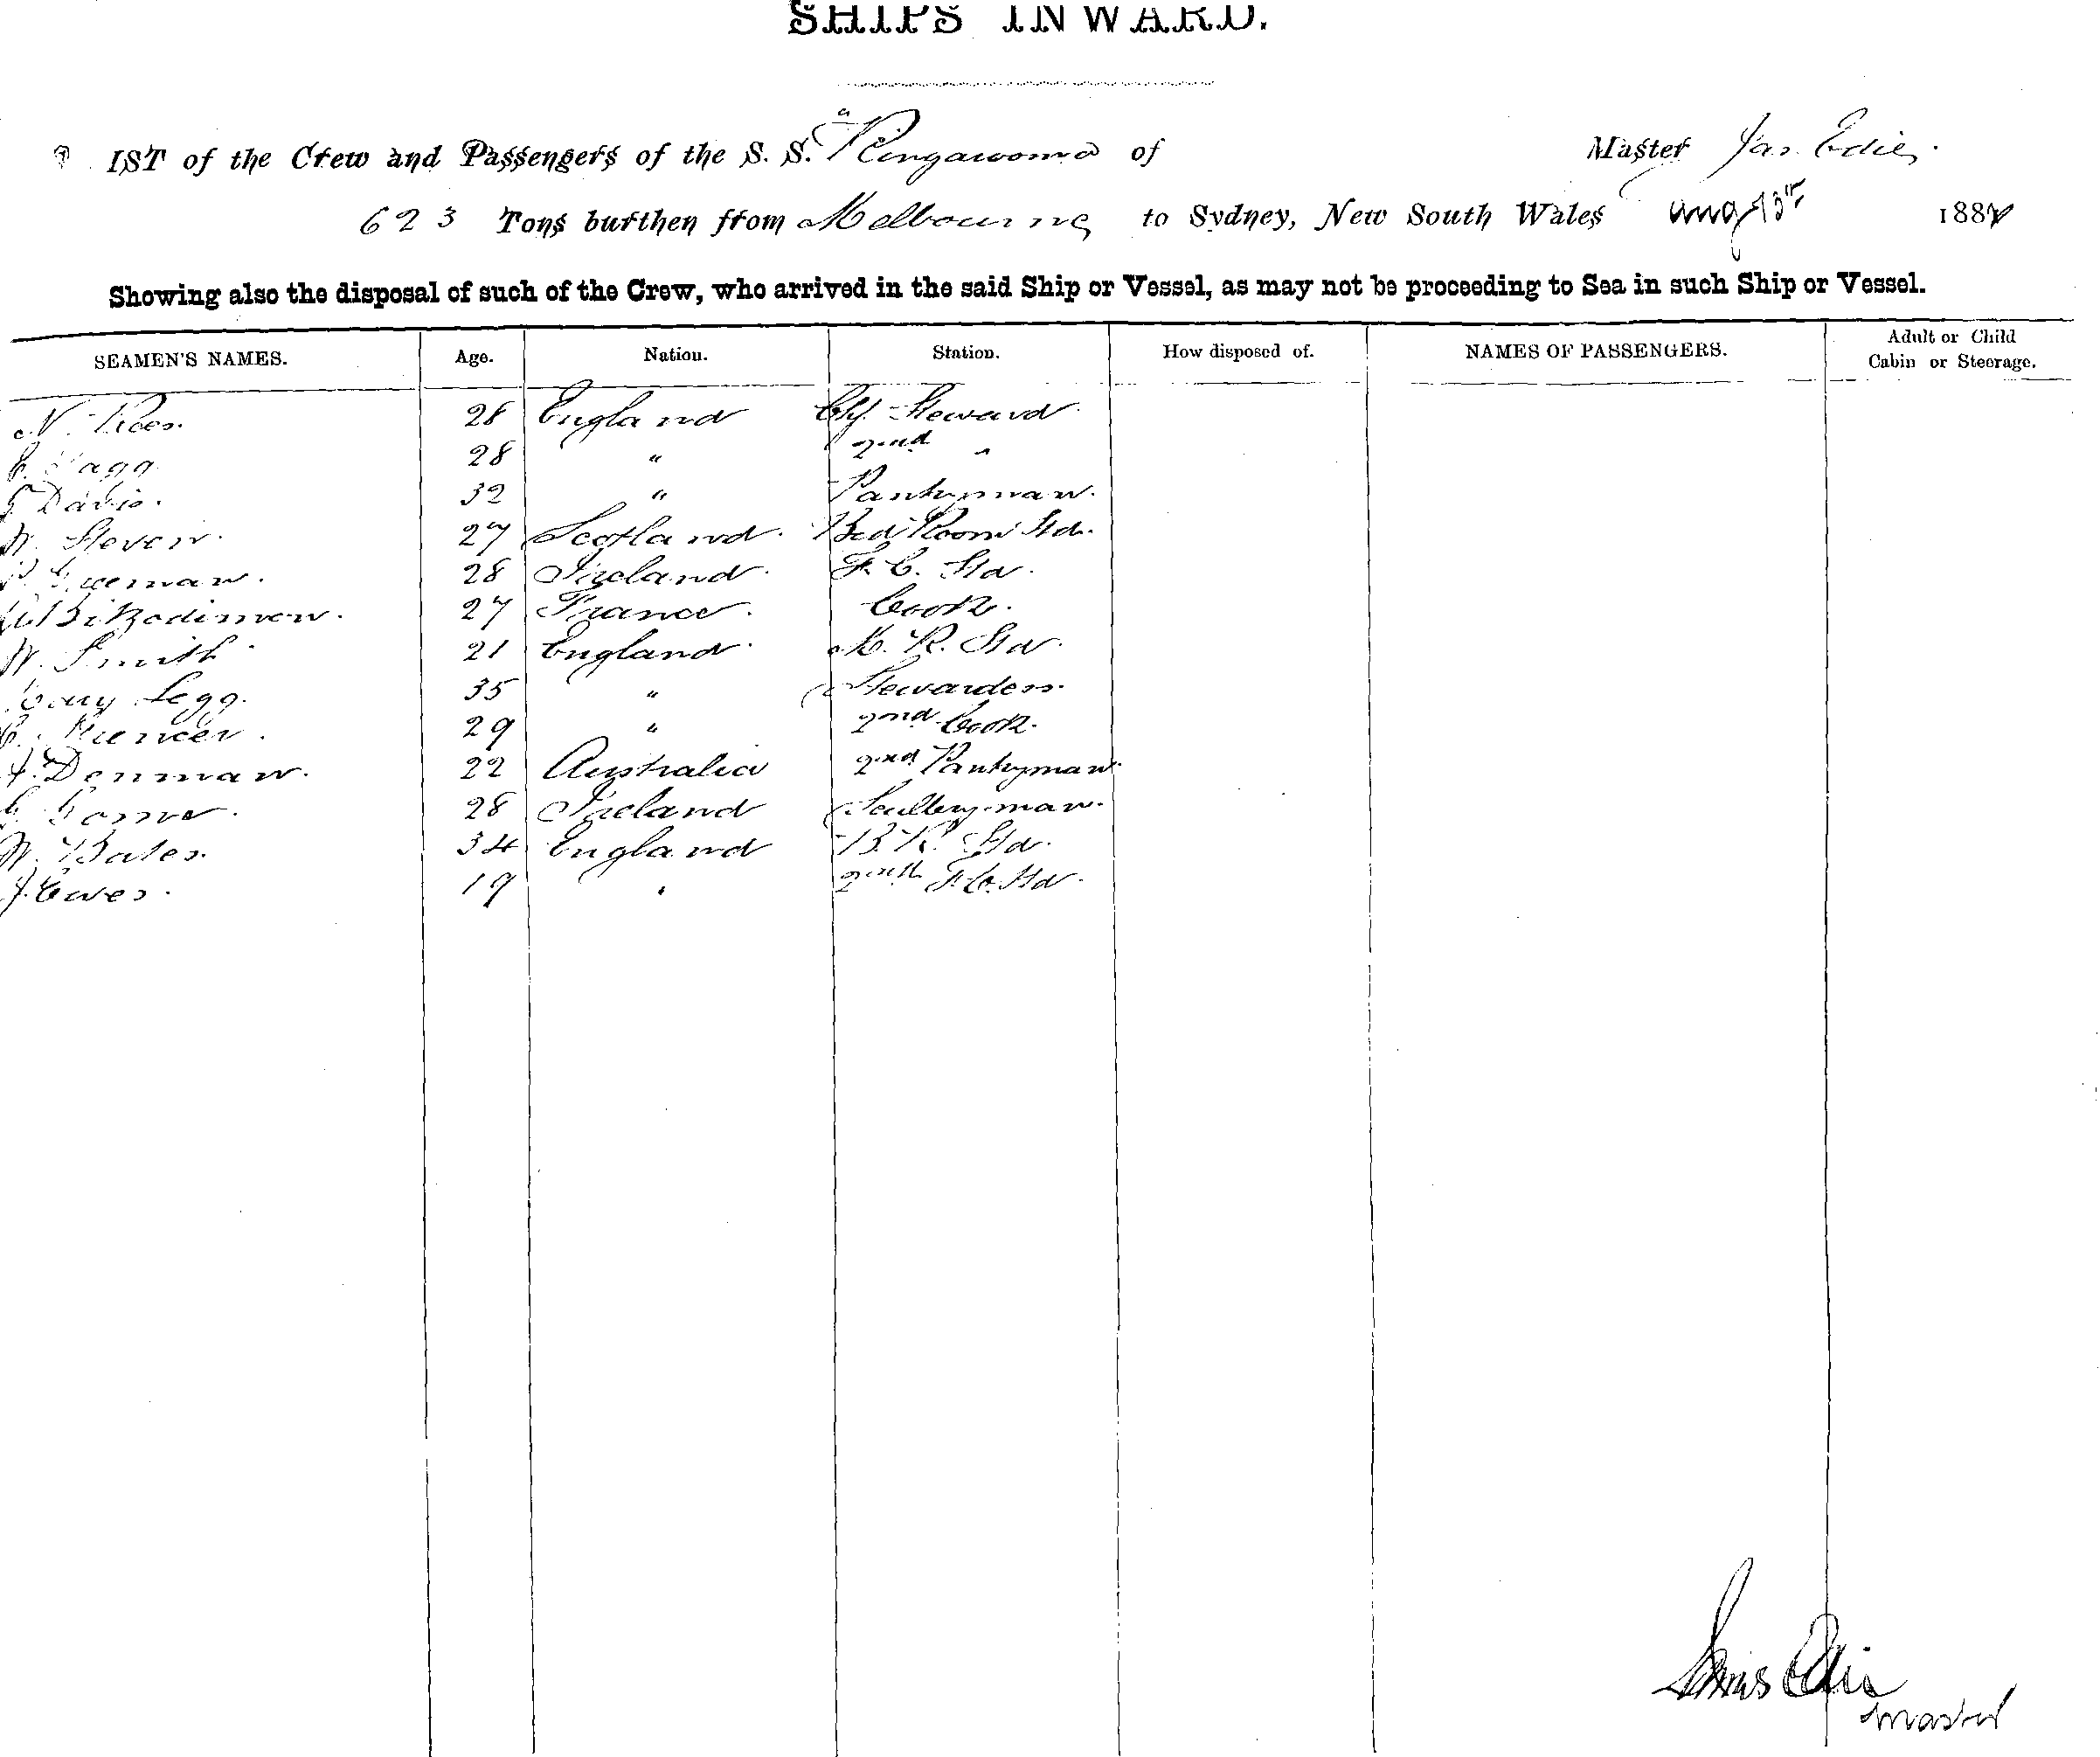 SHIPS INWARD.
IST of the Crew and Passengers of the S. S. " Ringarooma of Master Jas. Edie.
623 Tons burthen from Melbourne to Sydney, New South Wales Aug 188
Showing also the disposal of such of the Crew, who arrived in the said Ship or Vessel, as may not be proceeding to Sea in such Ship or Vessel.
SEAMEN'S NAMES. Age. Nation. Station. How disposed of. NAMES OF PASSENGERS. Adult or Child Cabin or Steerage.
N. Rees. 28 England Chf. Steward
28 " 2nd "
Davis. 32 " Pantryman.
W. Steven. 27 Scotland. Bed Room Std.
28 Ireland. F. C. Std.
27 France. Cook.
W. Smith 21 England. M. R. Std.
Legg. 35 " Stewardess.
29 " 2nd Cook.
J. Denman. 22 Australia 2nd Pantryman
28 Ireland Scullery-man.
W. Bates. 34 England B. R. Std.
19 " 2nd F. C. Std.
James Edie
Master